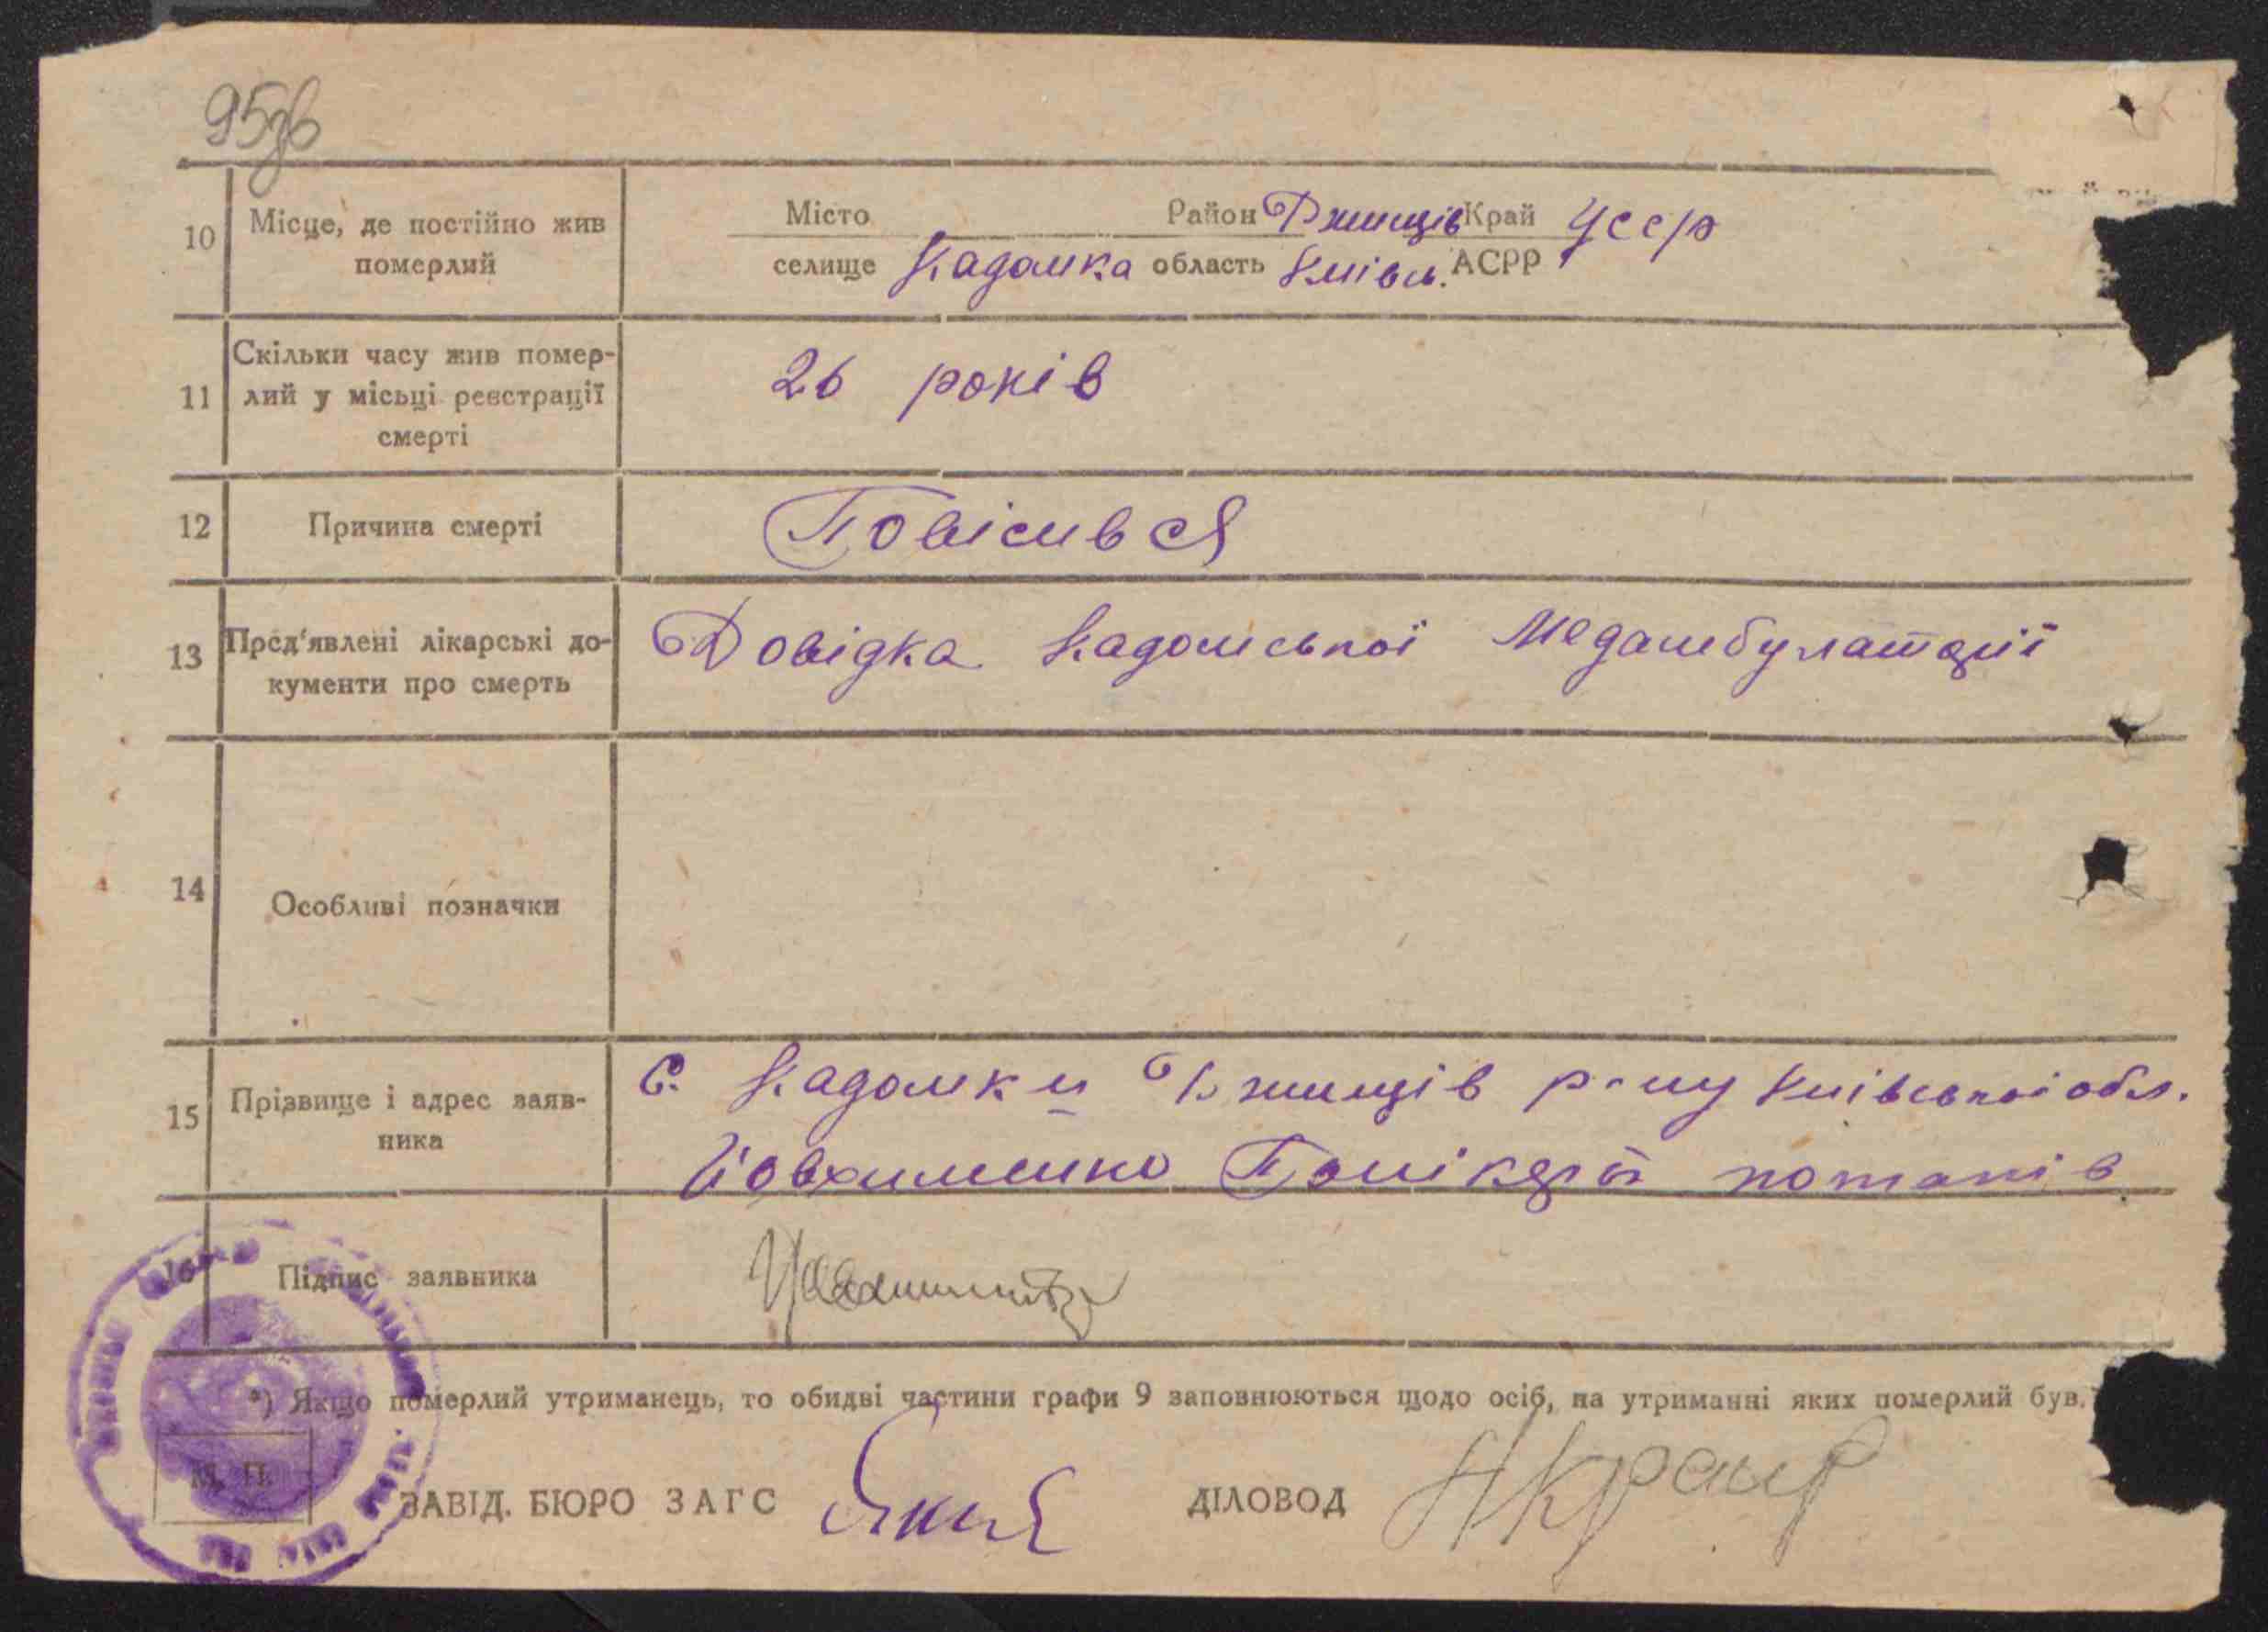 95зв
10 Місце, де постійно жив померлий
Місто Район Ржищів Край УССР
селище Кадомка область Київс. АСРР
11 Скільки часу жив помер-
лий у місьці реєстрації
смерті
26 років
12 Причина смерті Повісився
13 Пред'явлені лікарські до-
кументи про смерть
Довідка Кадомської Медамбулаторії
14 Особливі позначки
15 Прізвище і адрес заяв-
ника
С. Кадомки Ржищів р-ну Київської обл.
Йовхименко
16 Підпис заявника
*) Якщо померлий утриманець, то обидві частини графи 9 заповнюються щодо осіб, на утриманні яких померлий був.
М. П.
ЗАВІД. БЮРО ЗАГС ДІЛОВОД